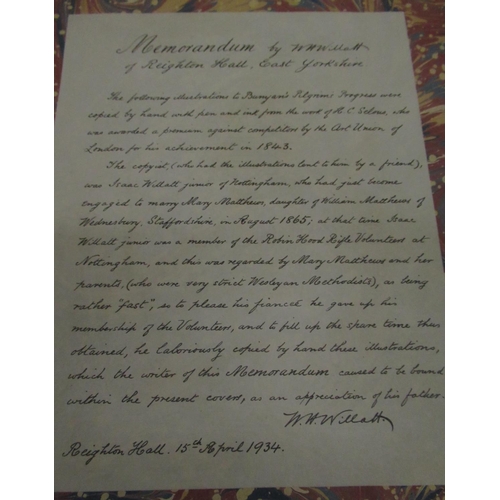 Memorandum by W.H.Willatt
of Reighton Hall, East Yorkshire
The following illustrations to Bunyan's Pilgrim's Progress were
copied by hand with pen and ink from the work of H.C. Selous, who
was awarded a premium against competitors by the Art Union of
London for his achievement in 1843.
The copyist, (who had the illustrations lent to him by a friend),
was Isaac Willatt junior of Nottingham, who had just become
engaged to marry Mary Matthews, daughter of William Matthews of
Wednesbury, Staffordshire, in August 1865; at that time Isaac
Willatt junior was a member of the Robin Hood Rifle Volunteers at
Nottingham, and this was regarded by Mary Matthews and her
parents, (who were very strict Wesleyan Methodists), as being
rather "fast", so to please his fiancée he gave up his
membership of the Volunteers, and to fill up the spare time thus
obtained, he laboriously copied by hand these illustrations,
which the writer of this Memorandum caused to be bound
within the present covers, as an appreciation of his father.
W.H.Willatt
Reighton Hall. 15th April 1934.